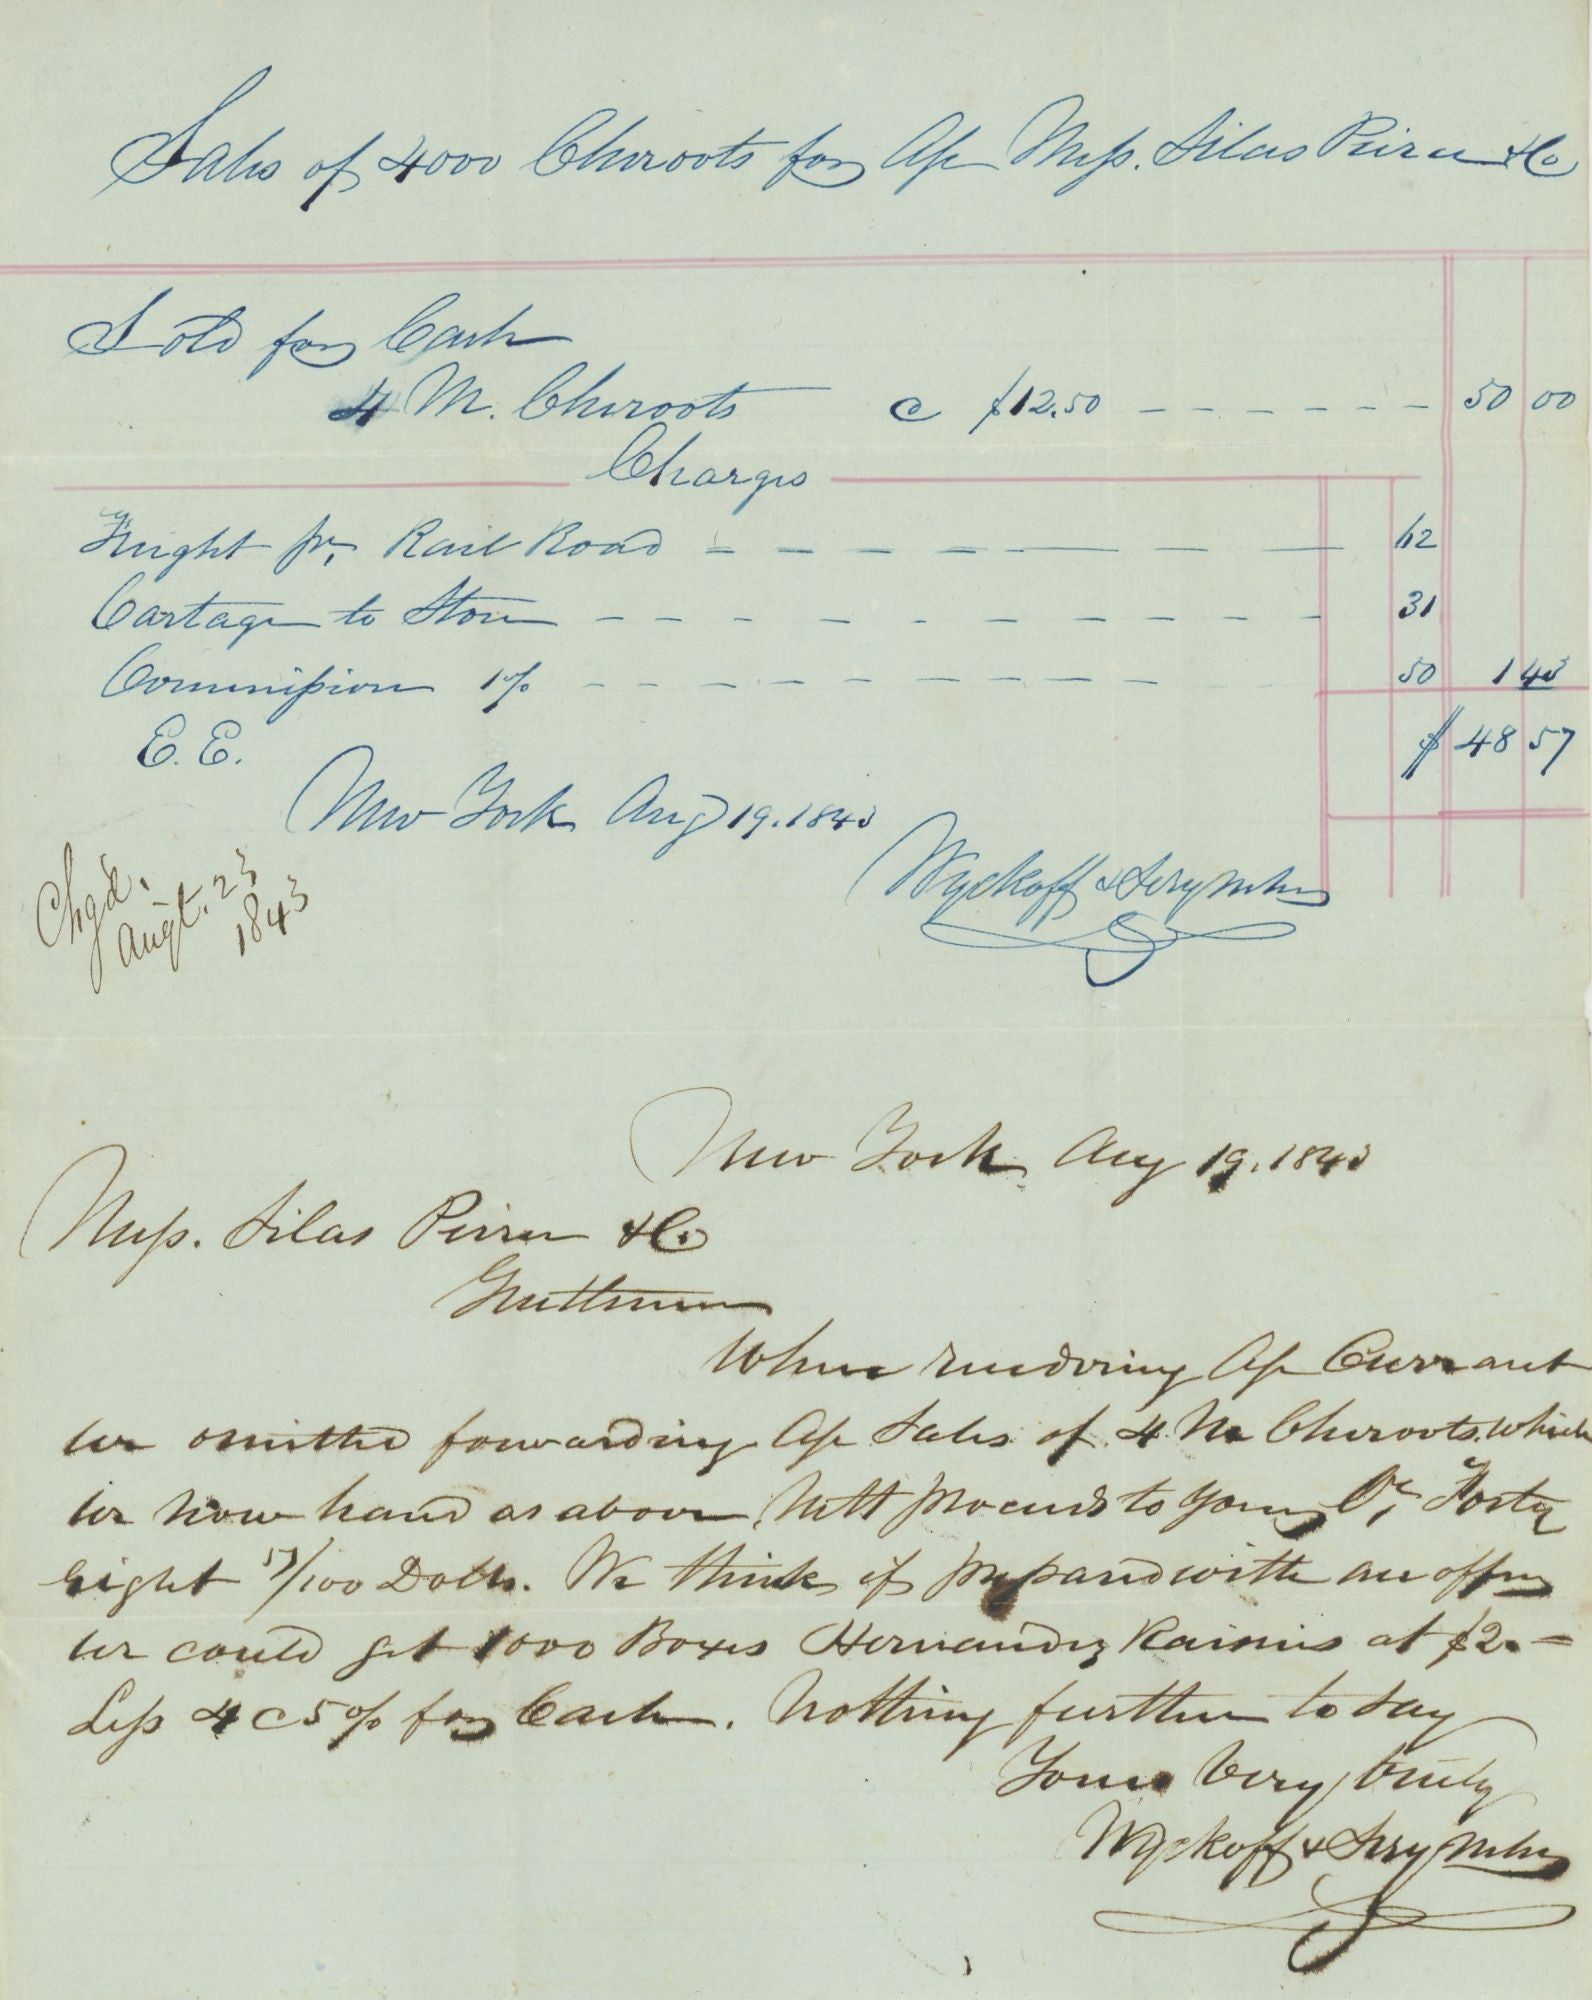 Sales of 4000 Cheroots for a/c Mess. Silas Peirce & Co
Sold for Cash
4 M. Cheroots @ $12.50 50 00
Charges
Freight pr. Rail Road 62
Cartage to Store 31
Commission 1% 50 1 43
E. E. $ 48 57
New York Aug 19. 1843
Wyckoff &
Chgd.
Augt. 23
1843
New York Aug 19. 1843
Mess. Silas Peirce & Co.
Gentlemen
When rendering a/c Currant
we omitted forwarding a/c Sales of 4 M Cheroots. which
we now hand as above. Nett proceeds to your Cr, Forty
eight 57/100 Dolls. We think if prepared with an offer
we could get 1000 Boxes Hernandez Raisins at $2. =
Less 4 @ 5% for Cash. Nothing further to say
Yours Very truly
Wyckoff &